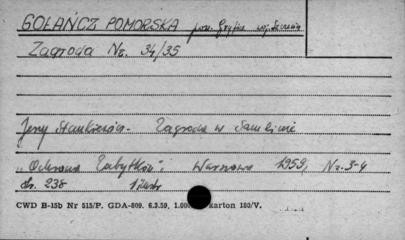 GOŁAŃCZ POMORSKA pow. Gryfice woj. Szczecin
Zagroda Nr. 34/35
Jerzy Stankiewicz - Zagroda w
"Ochrona Zabytków", Warszawa 1959, Nr. 3-4
str. 238
CWD B-15b Nr 515/P. GDA-809. 6.3.59, 1.00 karton 180/V.